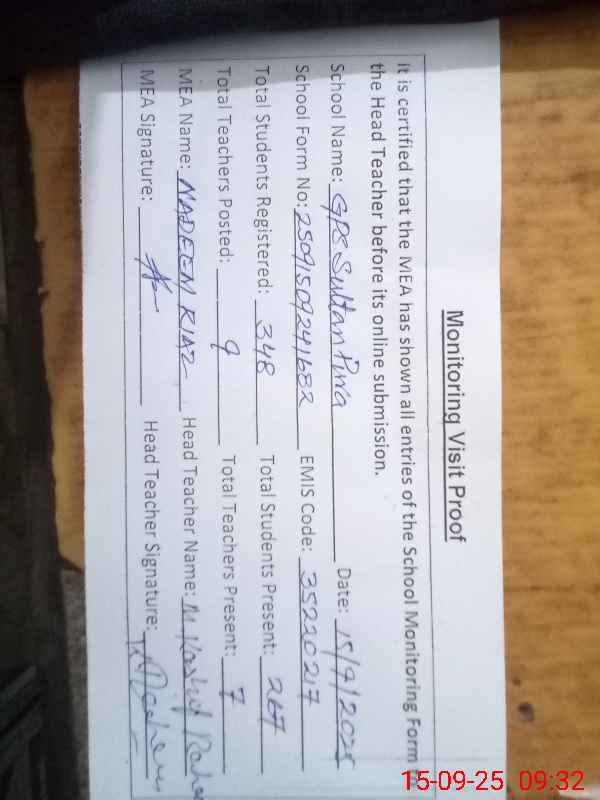 Monitoring Visit Proof
It is certified that the MEA has shown all entries of the School Monitoring Form
the Head Teacher before its online submission.
School Name: GPS Sultan Pura Date: 15/9/2025
School Form No: 25091509241682 EMIS Code: 35220217
Total Students Registered: 348 Total Students Present: 267
Total Teachers Posted: 9 Total Teachers Present: 7
MEA Name: NADEEM RIAZ Head Teacher Name: M Kashif
MEA Signature: Head Teacher Signature:
15-09-25 09:32